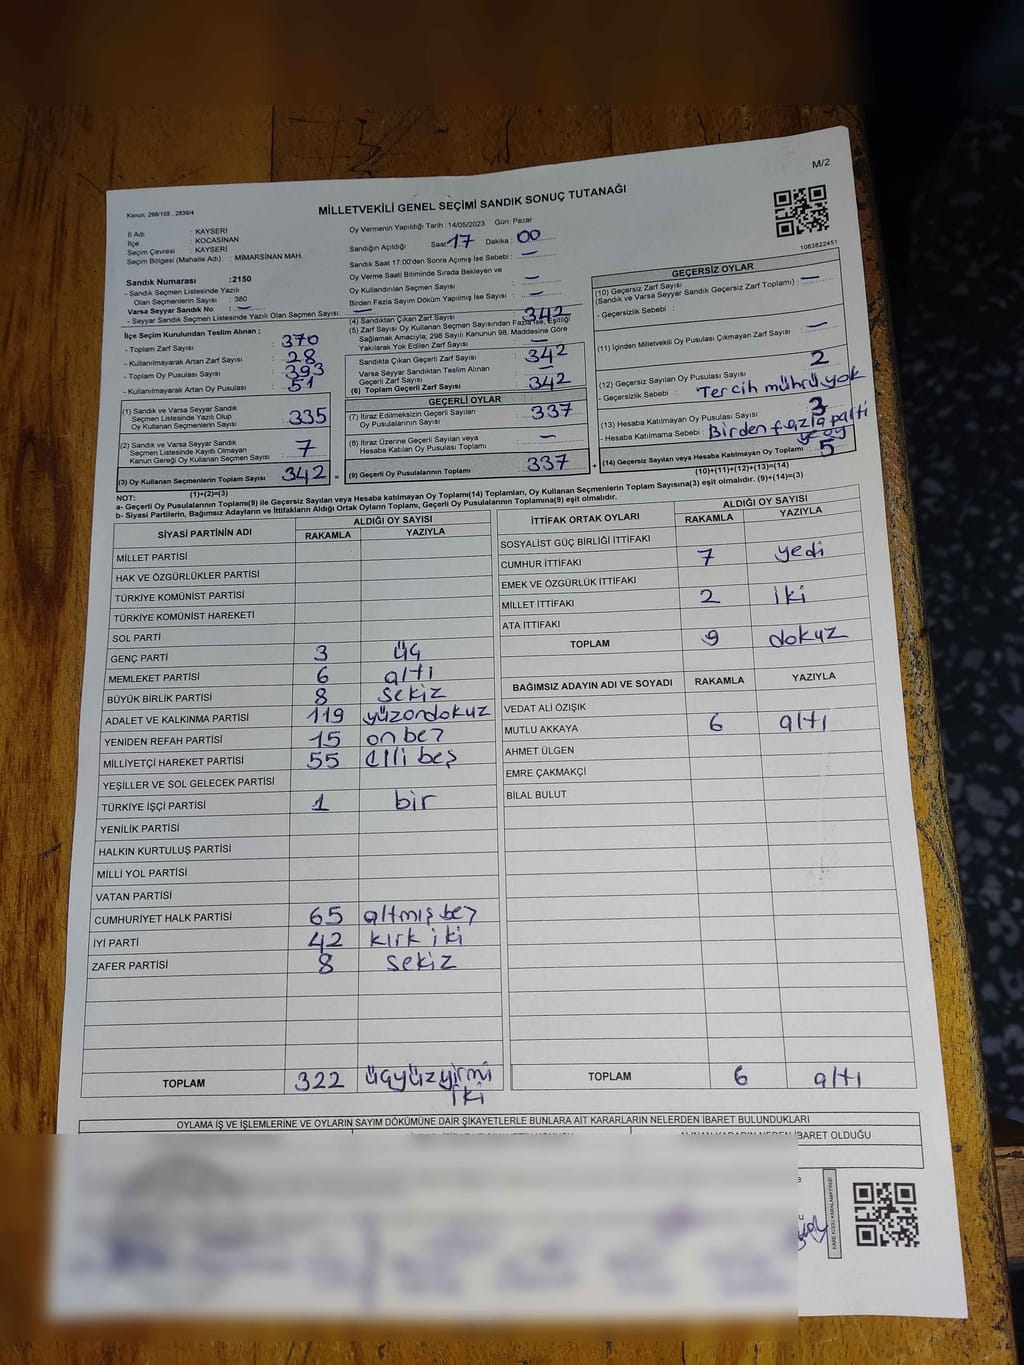 M/2
Kanun, 298/105 , 2839/4
MİLLETVEKİLİ GENEL SEÇİMİ SANDIK SONUÇ TUTANAĞI
İl Adı : KAYSERİ
İlçe : KOCASİNAN
Seçim Çevresi : KAYSERİ
Seçim Bölgesi (Mahalle Adı) : MİMARSİNAN MAH.
Sandık Numarası :2150
- Sandık Seçmen Listesinde Yazılı
Olan Seçmenlerin Sayısı : 380
Varsa Seyyar Sandık No : —
- Seyyar Sandık Seçmen Listesinde Yazılı Olan Seçmen Sayısı: —
Oy Vermenin Yapıldığı Tarih :14/05/2023 Gün: Pazar
Sandığın Açıldığı Saat: 17 Dakika : 00
Sandık Saat 17:00'den Sonra Açımış İse Sebebi : —
Oy Verme Saati Bitiminde Sırada Bekleyen ve
Oy Kullandırılan Seçmen Sayısı : —
Birden Fazla Sayım Döküm Yapılmış İse Sayısı : —
1083822451
İlçe Seçim Kurulundan Teslim Alınan ;
- Toplam Zarf Sayısı : 370
- Kullanılmayarak Artan Zarf Sayısı : 28
- Toplam Oy Pusulası Sayısı : 393
- Kullanılmayarak Artan Oy Pusulası : 51
(1) Sandık ve Varsa Seyyar Sandık
Seçmen Listesinde Yazılı Olup
Oy Kullanan Seçmen Sayısı : 335
(2) Sandık ve Varsa Seyyar Sandık
Seçmen Listesinde Kayıtlı Olmayan
Kanun Gereği Oy Kullanan Seçmen Sayısı : 7
(3) Oy Kullanan Seçmenlerin Toplam Sayısı : 342
(1)+(2)=(3)
(4) Sandıktan Çıkan Zarf Sayısı : 342
(5) Zarf Sayısı Oy Kullanan Seçmen Sayısından Fazla ise, Eşitliği
Sağlamak Amacıyla; 298 Sayılı Kanunun 98. Maddesine Göre
Yakılarak Yok Edilen Zarf Sayısı : —
Sandıkta Çıkan Geçerli Zarf Sayısı : 342
Varsa Seyyar Sandıktan Teslim Alınan
Geçerli Zarf Sayısı : —
(6) Toplam Geçerli Zarf Sayısı : 342
GEÇERLİ OYLAR
(7) İtiraz Edilmeksizin Geçerli Sayılan
Oy Pusulasının Sayısı : 337
(8) İtiraz Üzerine Geçerli Sayılan veya
Hesaba Katılan Oy Pusulası Toplamı : —
(9) Geçerli Oy Pusulalarının Toplamı : 337
GEÇERSİZ OYLAR
(10) Geçersiz Zarf Sayısı
(Sandık ve Varsa Seyyar Sandık Geçersiz Zarf Toplamı) : —
- Geçersizlik Sebebi :
(11) İçinden Milletvekili Oy Pusulası Çıkmayan Zarf Sayısı : —
(12) Geçersiz Sayılan Oy Pusulası Sayısı : 2
- Geçersizlik Sebebi : Tercih mührü yok
(13) Hesaba Katılmayan Oy Pusulası Sayısı : 3
- Hesaba Katılmama Sebebi : Birden fazla parti
(14) Geçersiz Sayılan veya Hesaba Katılmayan Oy Toplamı : 5
(10)+(11)+(12)+(13)=(14)
NOT:
a- Geçerli Oy Pusulalarının Toplamı(9) ile Geçersiz Sayılan veya Hesaba katılmayan Oy Toplamı(14) Toplamları, Oy Kullanan Seçmenlerin Toplam Sayısına(3) eşit olmalıdır. (9)+(14)=(3)
b- Siyasi Partilerin, Bağımsız Adayların ve İttifakların Aldığı Ortak Oyların Toplamı, Geçerli Oy Pusulalarının Toplamına(9) eşit olmalıdır.
SİYASİ PARTİNİN ADI ALDIĞI OY SAYISI
RAKAMLA YAZIYLA
MİLLET PARTİSİ
HAK VE ÖZGÜRLÜKLER PARTİSİ
TÜRKİYE KOMÜNİST PARTİSİ
TÜRKİYE KOMÜNİST HAREKETİ
SOL PARTİ
GENÇ PARTİ 3 üç
MEMLEKET PARTİSİ 6 altı
BÜYÜK BİRLİK PARTİSİ 8 sekiz
ADALET VE KALKINMA PARTİSİ 119 yüzondokuz
YENİDEN REFAH PARTİSİ 15 on beş
MİLLİYETÇİ HAREKET PARTİSİ 55 elli beş
YEŞİLLER VE SOL GELECEK PARTİSİ
TÜRKİYE İŞÇİ PARTİSİ 1 bir
YENİLİK PARTİSİ
HALKIN KURTULUŞ PARTİSİ
MİLLİ YOL PARTİSİ
VATAN PARTİSİ
CUMHURİYET HALK PARTİSİ 65 altmış beş
İYİ PARTİ 42 kırk iki
ZAFER PARTİSİ 8 sekiz
TOPLAM 322 üçyüzyirmi
iki
İTTİFAK ORTAK OYLARI ALDIĞI OY SAYISI
RAKAMLA YAZIYLA
SOSYALİST GÜÇ BİRLİĞİ İTTİFAKI
CUMHUR İTTİFAKI 7 yedi
EMEK VE ÖZGÜRLÜK İTTİFAKI
MİLLET İTTİFAKI 2 iki
ATA İTTİFAKI
TOPLAM 9 dokuz
BAĞIMSIZ ADAYIN ADI VE SOYADI RAKAMLA YAZIYLA
VEDAT ALİ ÖZIŞIK
MUTLU AKKAYA 6 altı
AHMET ÜLGEN
EMRE ÇAKMAKÇİ
BİLAL BULUT
TOPLAM 6 altı
OYLAMA İŞ VE İŞLEMLERİNE VE OYLARIN SAYIM DÖKÜMÜNE DAİR ŞİKAYETLERLE BUNLARA AİT KARARLARIN NELERDEN İBARET BULUNDUKLARI
ALINAN KARARIN NEDEN İBARET OLDUĞU
KARE KODU KARALAMAYINIZ!